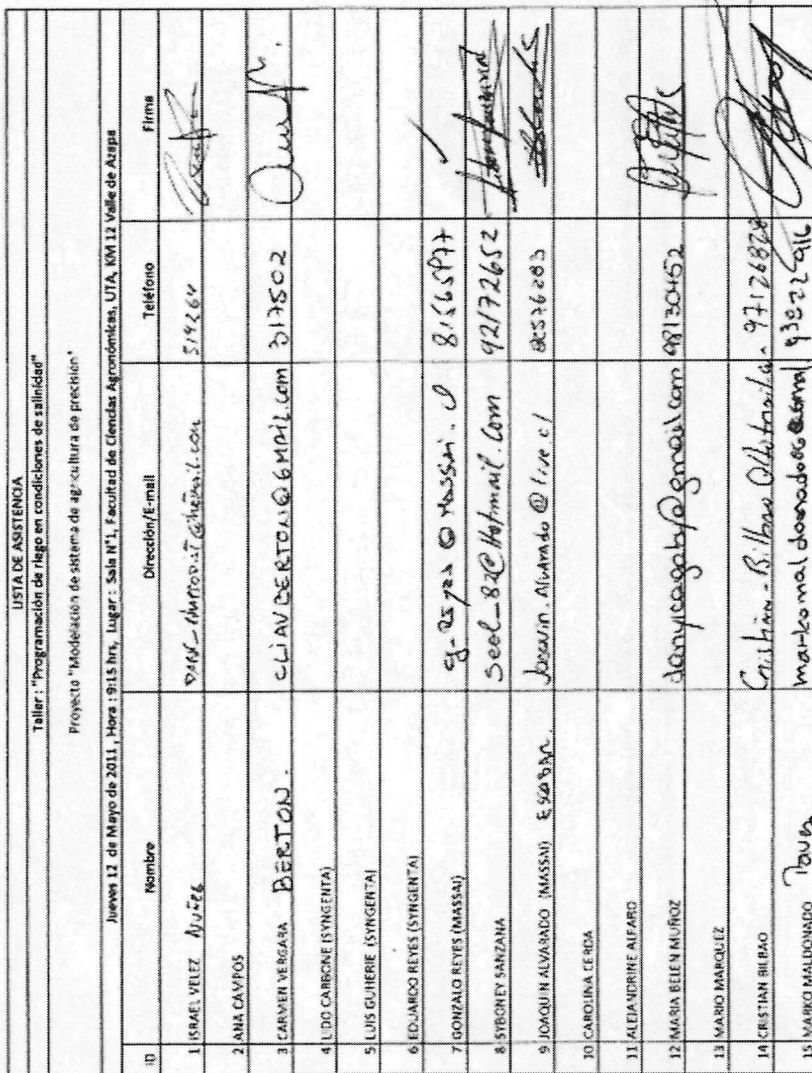 LISTA DE ASISTENCIA
Taller : "Programación de riego en condiciones de salinidad"
Proyecto "Modelación de sistema de agricultura de precisión"
Jueves 12 de Mayo de 2011, Hora : 9:15 hrs, Lugar : Sala N°1, Facultad de Ciencias Agronómicas, UTA, KM 12 Valle de Azapa
ID Nombre Dirección/E-mail Teléfono Firma
1 ISRAEL VELEZ Nuñez 314264
2 ANA CAMPOS
3 CARMEN VERGARA BERTON. CLIAVBERTON@GMAIL.com 317502
4 LIDO CARBONE (SYNGENTA)
5 LUIS GUHERIE (SYNGENTA)
6 EDUARDO REYES (SYNGENTA)
7 GONZALO REYES (MASSAI) g-reyes@massai.cl
8 SYBONEY SANZANA Seol_82@Hotmail.com 92172652
9 JOAQUIN ALVARADO (MASSAI) ESCOBAR. Joaquin.Alvarado@live.cl
10 CAROLINA CERDA
11 ALEJANDRINE ALFARO
12 MARIA BELEN MUÑOZ danycagaby@gmail.com 98130452
13 MARIO MARQUEZ
14 CRISTIAN BILBAO 97126828
15 MARKO MALDONADO